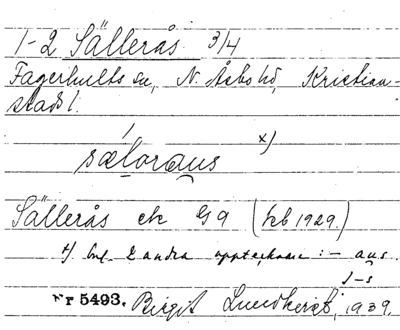 1-2 Sällerås 3/4
Fagerhults sn, N. Åsbo hd, Kristian-
stads l.
sæloraus x)
Sällerås ek G 9 (Feb 1929.)
x) Enl. 2 andra upptecknare :- aus
Nr 5493. Birgit Lundbergt, 1939.